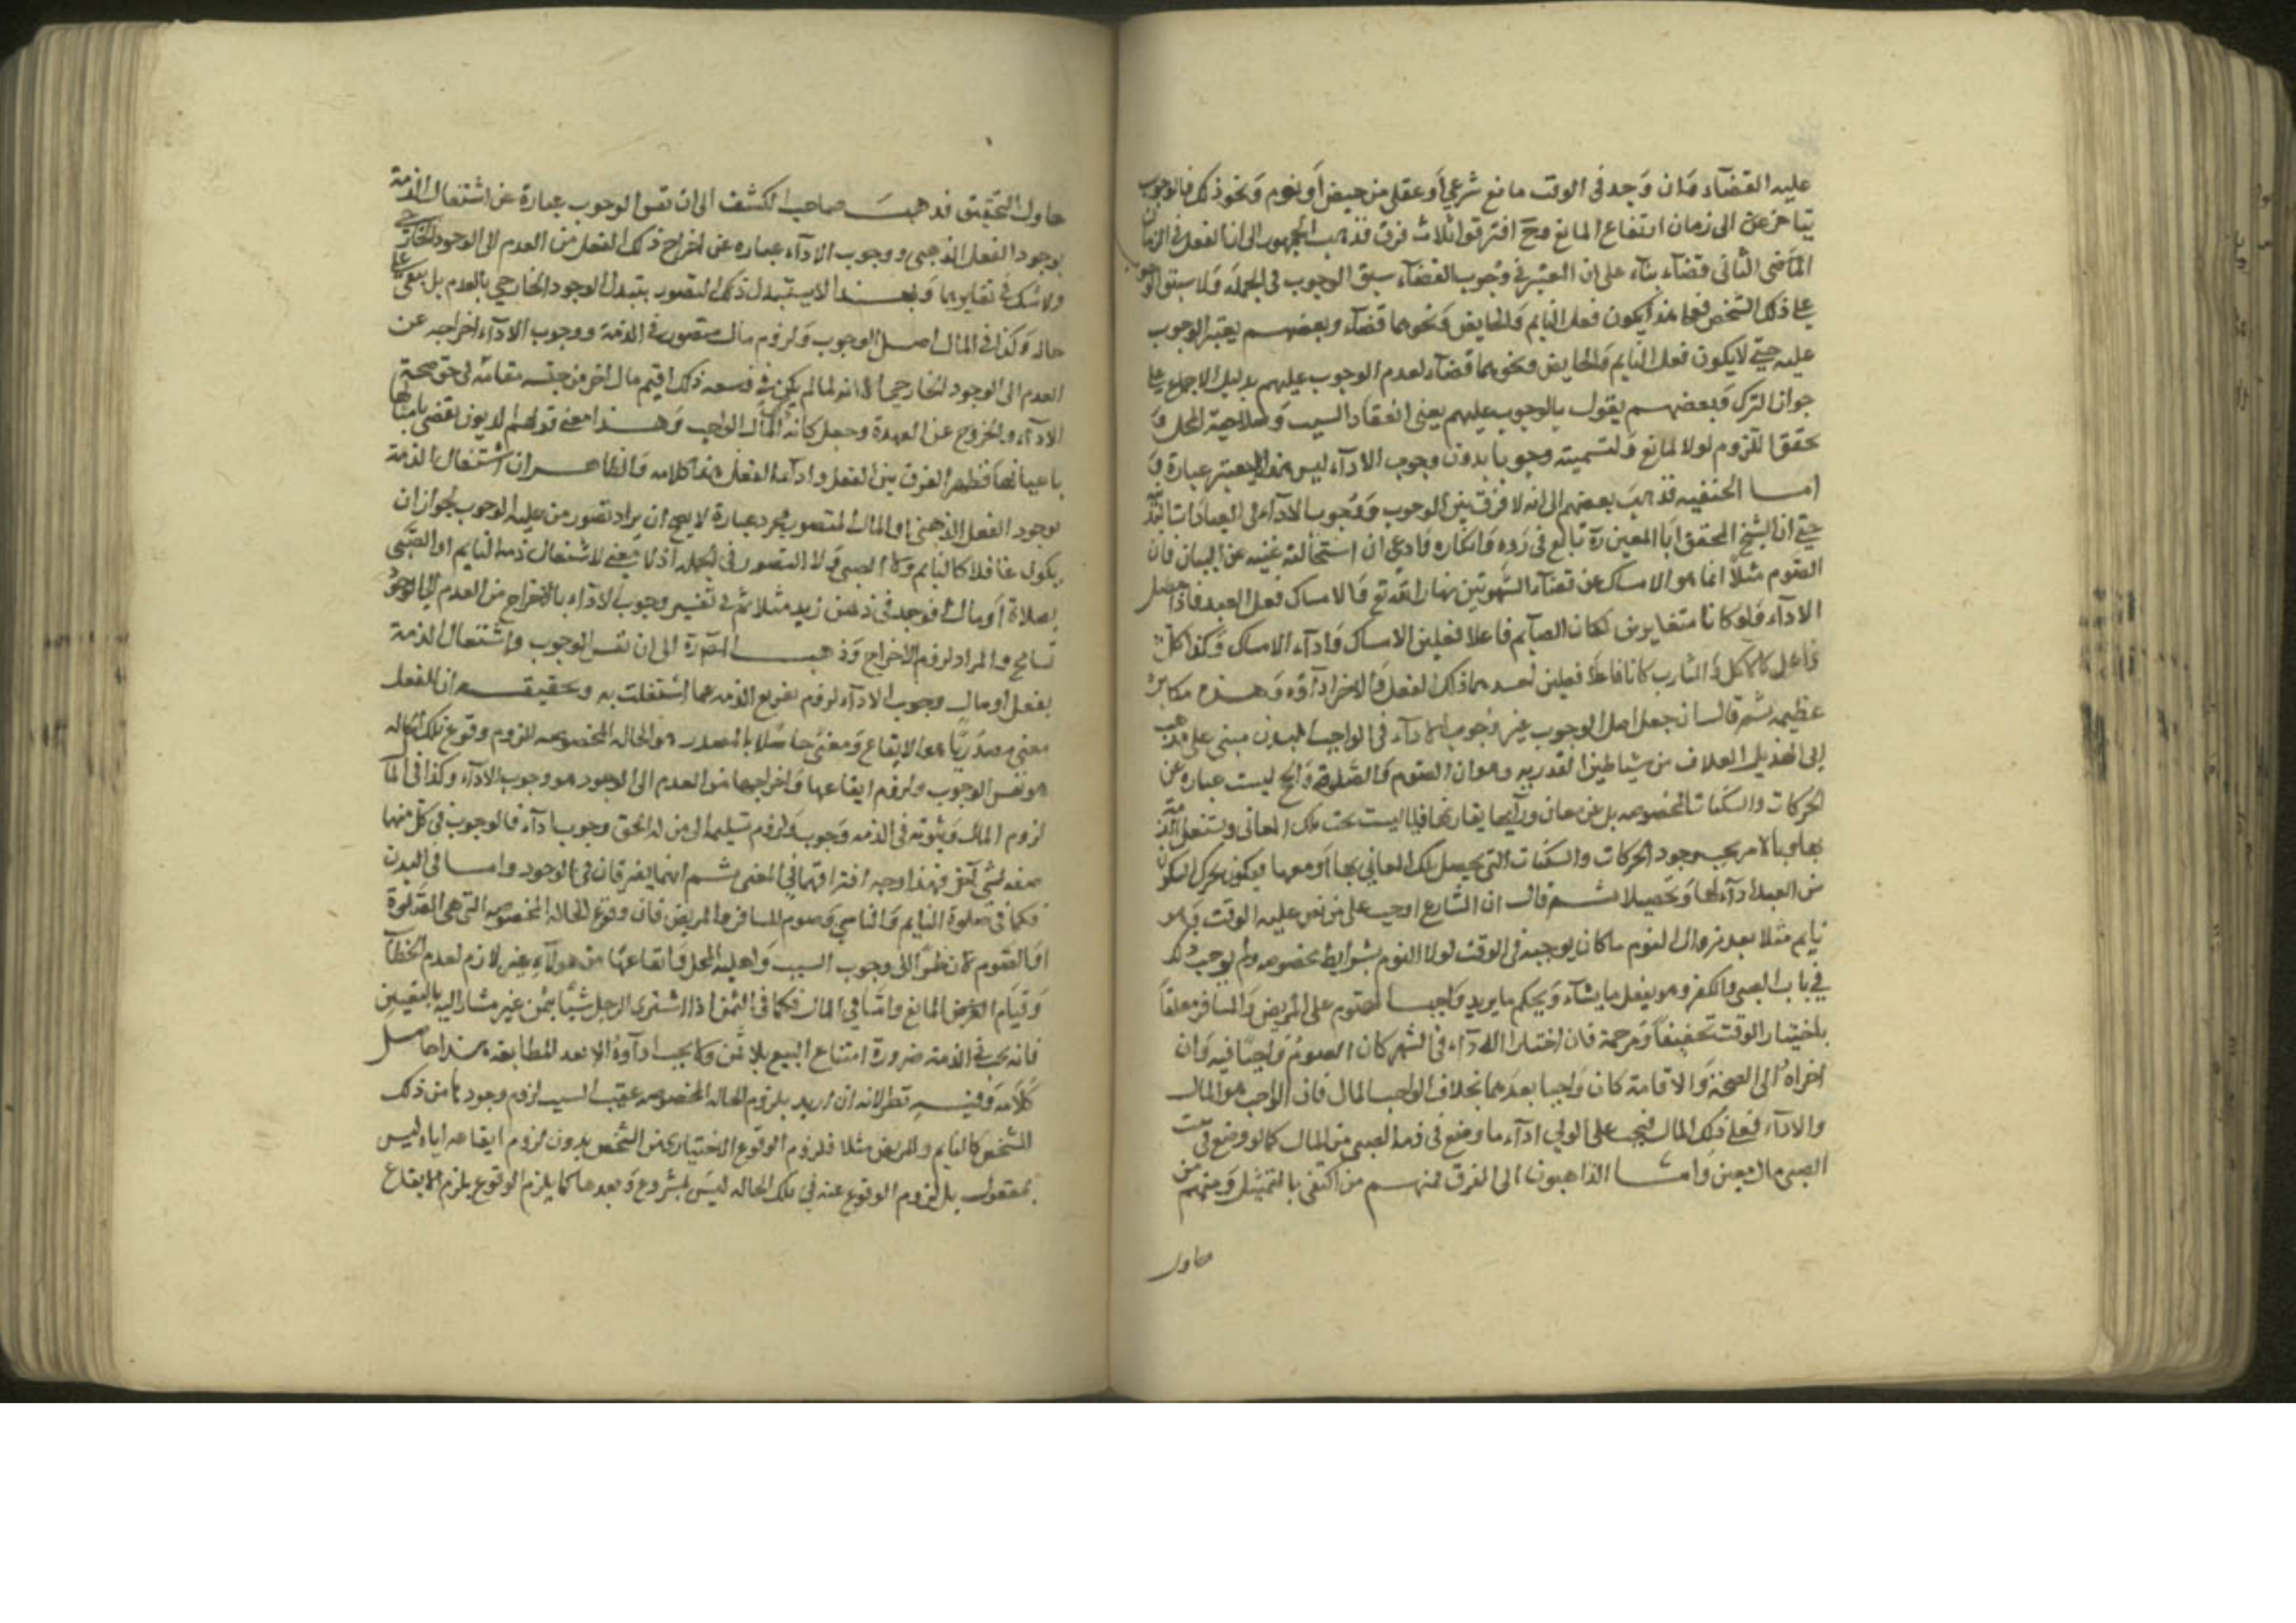 عليه القضاء وان وجد في الوقت مانع شرعي أو عقلي من حيض أو نوم ونحو ذلك فالوجوب
يتأخر عنه الى زمان ارتفاع المانع وح افترقوا ثلاث فرق فذهب الجمهور الى ان الفعل في الزمان
الثاني قضاء بناء على ان المعتبر في وجوب القضاء سبق الوجوب في الجملة ولا سبق الوجوب
على ذلك الشخص فعلى هذا يكون فعل النايم والحايض ونحوهما قضاء وبعضهم يعتبر الوجوب
عليه حتى لا يكون فعل النايم والحايض ونحوهما قضاء لعدم الوجوب عليهم بدليل الاجماع على
جواز الترك وبعضهم يقول بالوجوب عليهم بمعنى انعقاد السبب وصلاحية المحل و
تحقق اللزوم لولا المانع ولتسميته وجوبا بدون وجوب الاداء ليس هذا الا بتغيير عبارة و
اما الحنفيه فذهب بعضهم الى انه لا فرق بين الوجوب ووجوب الاداء في العبادات البدنية
حتى ان الشيخ المحقق ابا المعين رة بالغ في رده وانكاره وادعى ان استحالته غنيه عن البيان فان
الصوم مثلا انما هو الامساك عن قضاء الشهوتين نهارا لله تع والامساك فعل العبد فاذا حصل
الاداء فلو كانا متغايرين لكان الصايم فاعلا فعلين الامساك واداء الامساك وكذا كل
فاعل كالآكل والشارب كانا فاعلا فعلين احدهما ذلك الفعل والاخر اداؤه وهذه مكابرة
عظيمه ثم قال ان جعل اصل الوجوب غير وجوب الاداء في الواجب البدني مبني على مذهب
ابي الهذيل العلاف من شياطين القدريه وهو ان الصوم والصلوة والحج ليست عبارة عن
الحركات والسكنات المخصوصه بل عن معان وراءها يقارنها فبالسبب تجب تلك المعاني ويشتغل الذمة
بها وبالامر يجب وجود الحركات والسكنات التي يحصل تلك المعاني بها او معها فيكون تحرك السكون
من العبد اداء لها وتحصيلا ثم قال ان الشارع اوجب على من نص عليه الوقت وهو
نايم مثلا بعد زوال النوم ما كان يوجبه في الوقت لولا النوم بشرايط مخصوصه ولم يوجب ذلك
في باب الصبي والكفر وهو يفعل ما يشاء ويحكم ما يريد واوجب الصوم على المريض والمسافر معلقا
باختيار الوقت تخفيفا ومرحمة فان اختارا الاداء في الشهر كان الصوم واجبا فيه وان
اخراه الى الصحة والاقامة كان واجبا بعدهما بخلاف الواجب المال فان الواجب هو المال
والاداء فعل في ذلك المال فيجب على الولي اداء ما وضع في ذمة الصبي من المال كما لو وضع في بيت
الصبي مال معين واما الذاهبون الى الفرق فمنهم من اكتفى بالتمثيل ومنهم من
حاول
حاول التحقيق فذهب صاحب الكشف الى ان نفس الوجوب عبارة عن اشتغال الذمة
بوجود الفعل الذهني ووجوب الاداء عباره عن اخراج ذلك الفعل من العدم الى الوجود الخارجي
ولا شك في تغايرهما وبعد لا يتبدل ذلك التصور بتبدل الوجود الخارجي بالعدم بل يبقى على
حاله وكذا في المال اصل الوجوب ولزوم مال متصور في الذمة ووجوب الاداء اخراجه عن
العدم الى الوجود الخارجي الا انه لما لم يكن في وسعه ذلك اقيم مال اخر من جنسه مقامه في حق صحة
الاداء والخروج عن العهدة وجعل كانه المال الواجب وهذا معنى قولهم الديون تقضى بامثالها لا
باعيانها فظهر الفرق بين الفعل واداء الفعل هذا كلامه والظاهر ان اشتغال الذمة
بوجود الفعل الذهني او المال المتصور مجرد عبارة لا يصح ان يراد تصور من عليه الوجوب لجواز ان
يكون غافلا كالنايم والصبي ولا التصور في الجمله اذ لا معنى لاشتغال ذمة النايم او الصبي
بصلاة او مال فوجد في ذهن زيد مثلا ثم في تفسير وجوب الاداء بالاخراج من العدم الى الوجود
تسامح والمراد لزوم الاخراج وذهب الى ان نفس الوجوب واشتغال الذمة
بفعل او مال ووجوب الاداء لزوم تفريغ الذمه عما اشتغلت به وتحقيقه ان للفعل
معنى مصدريا هو الايقاع ومعنى حاصلا بالمصدر هو الحاله المخصوصه فلزوم وقوع تلك الحاله
هو نفس الوجوب ولزوم ايقاعها واخراجها من العدم الى الوجود هو وجوب الاداء وكذا في المال
لزوم المال وثبوته في الذمه وجوب ولزوم تسليمه الى من له الحق وجوب اداء فالوجوب في كل منهما
صفه لشي اخر فهذا وجه افتراقهما في المعنى ثم انهما يفترقان في الوجود واما في البدن
فكما في صلوة النايم والناسي وصوم المسافر والمريض فان وقوع الحاله المخصوصه التي هي الصلوة
او الصوم لازم نظرا الى وجوب السبب واهليه المحل وايقاعها من هولاء غير لازم لعدم الخطاب
وقيام المانع واما في المال فكما في الثمن اذا اشترى الرجل شيئا بثمن غير مشار اليه بالتعيين
فانه يجب في الذمة ضرورة امتناع البيع بلا ثمن ولا يجب اداؤه الا بعد المطالبه هذا حاصل
كلامه وفيه نظر لانه ان اريد بلزوم الحاله المخصوصه عقيب السبب لزوم وجودها من ذلك
الشخص كالنايم والمريض مثلا فلزوم الوقوع الاختياري من الشخص بدون لزوم ايقاعه اياه ليس
بمعقول بل لزوم الوقوع عنه في تلك الحاله ليس بمشروع وبعدها كما يلزم الوقوع يلزم الايقاع